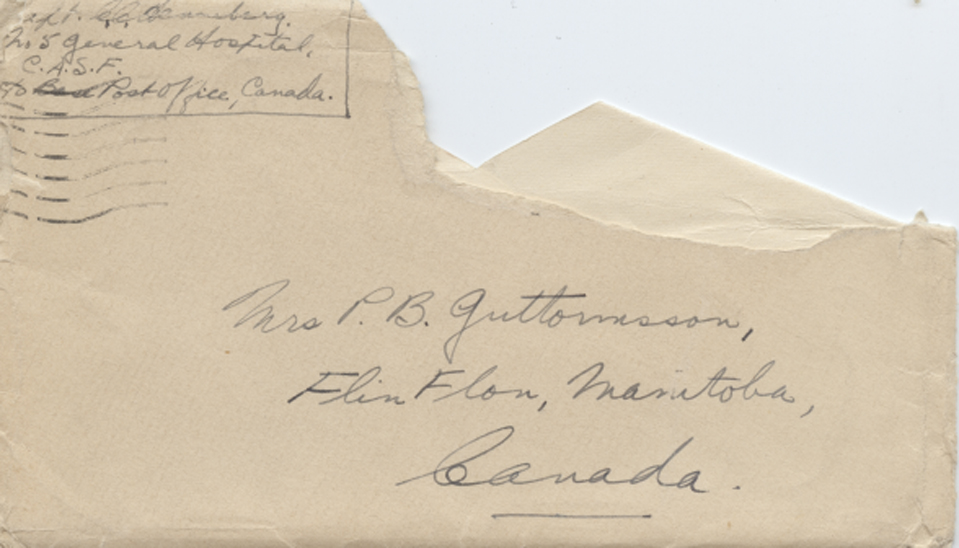 Capt.
No 5 General Hospital,
C.A.S.F.
c/o Base Post Office, Canada.
Mrs P. B. Guttormsson,
Flin Flon, Manitoba,
Canada.